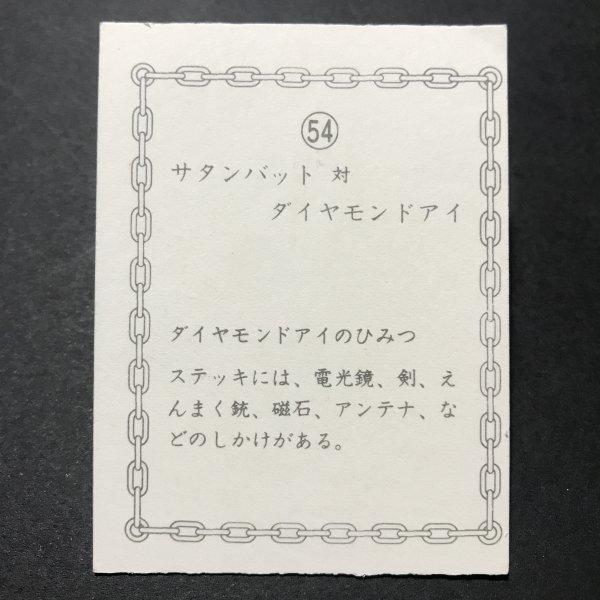 54
サタンバット 対
ダイヤモンドアイ
ダイヤモンドアイのひみつ
ステッキには、電光鏡、剣、え
んまく銃、磁石、アンテナ、な
どのしかけがある。